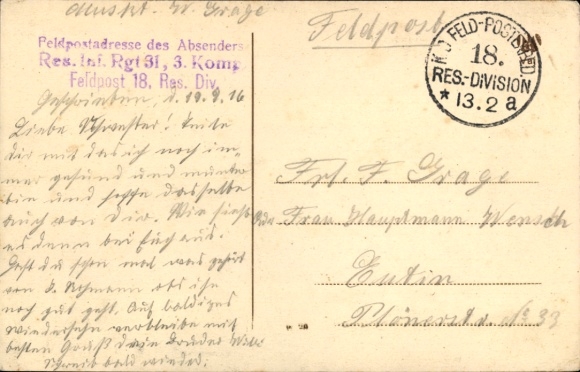 Muskt. W. Grage
Feldpost
Feldpostadresse des Absenders
Res. Inf. Rgt 31, 3. Komp
Feldpost 18. Res. Div.
K.D. FELD-POSTEXPED.
18.
RES.-DIVISION
* 13.2 a
Geschrieben, d. 19.9.16
Liebe Schwester! Teile
dir mit das ich noch im-
mer gesund und munter
bin und hoffe dasselbe
auch von dir. Wie sieht
es denn bei Euch aus.
Hast du schon mal was gehört
von ob ihr
noch gut geht. Auf baldiges
wiedersehn verbleibe mit
besten Gruß dein Bruder Will.
Schreib bald wieder.
Frl. F. Grage
Frau Hauptmann Wensch
Eutin
Plönerstr. No 33